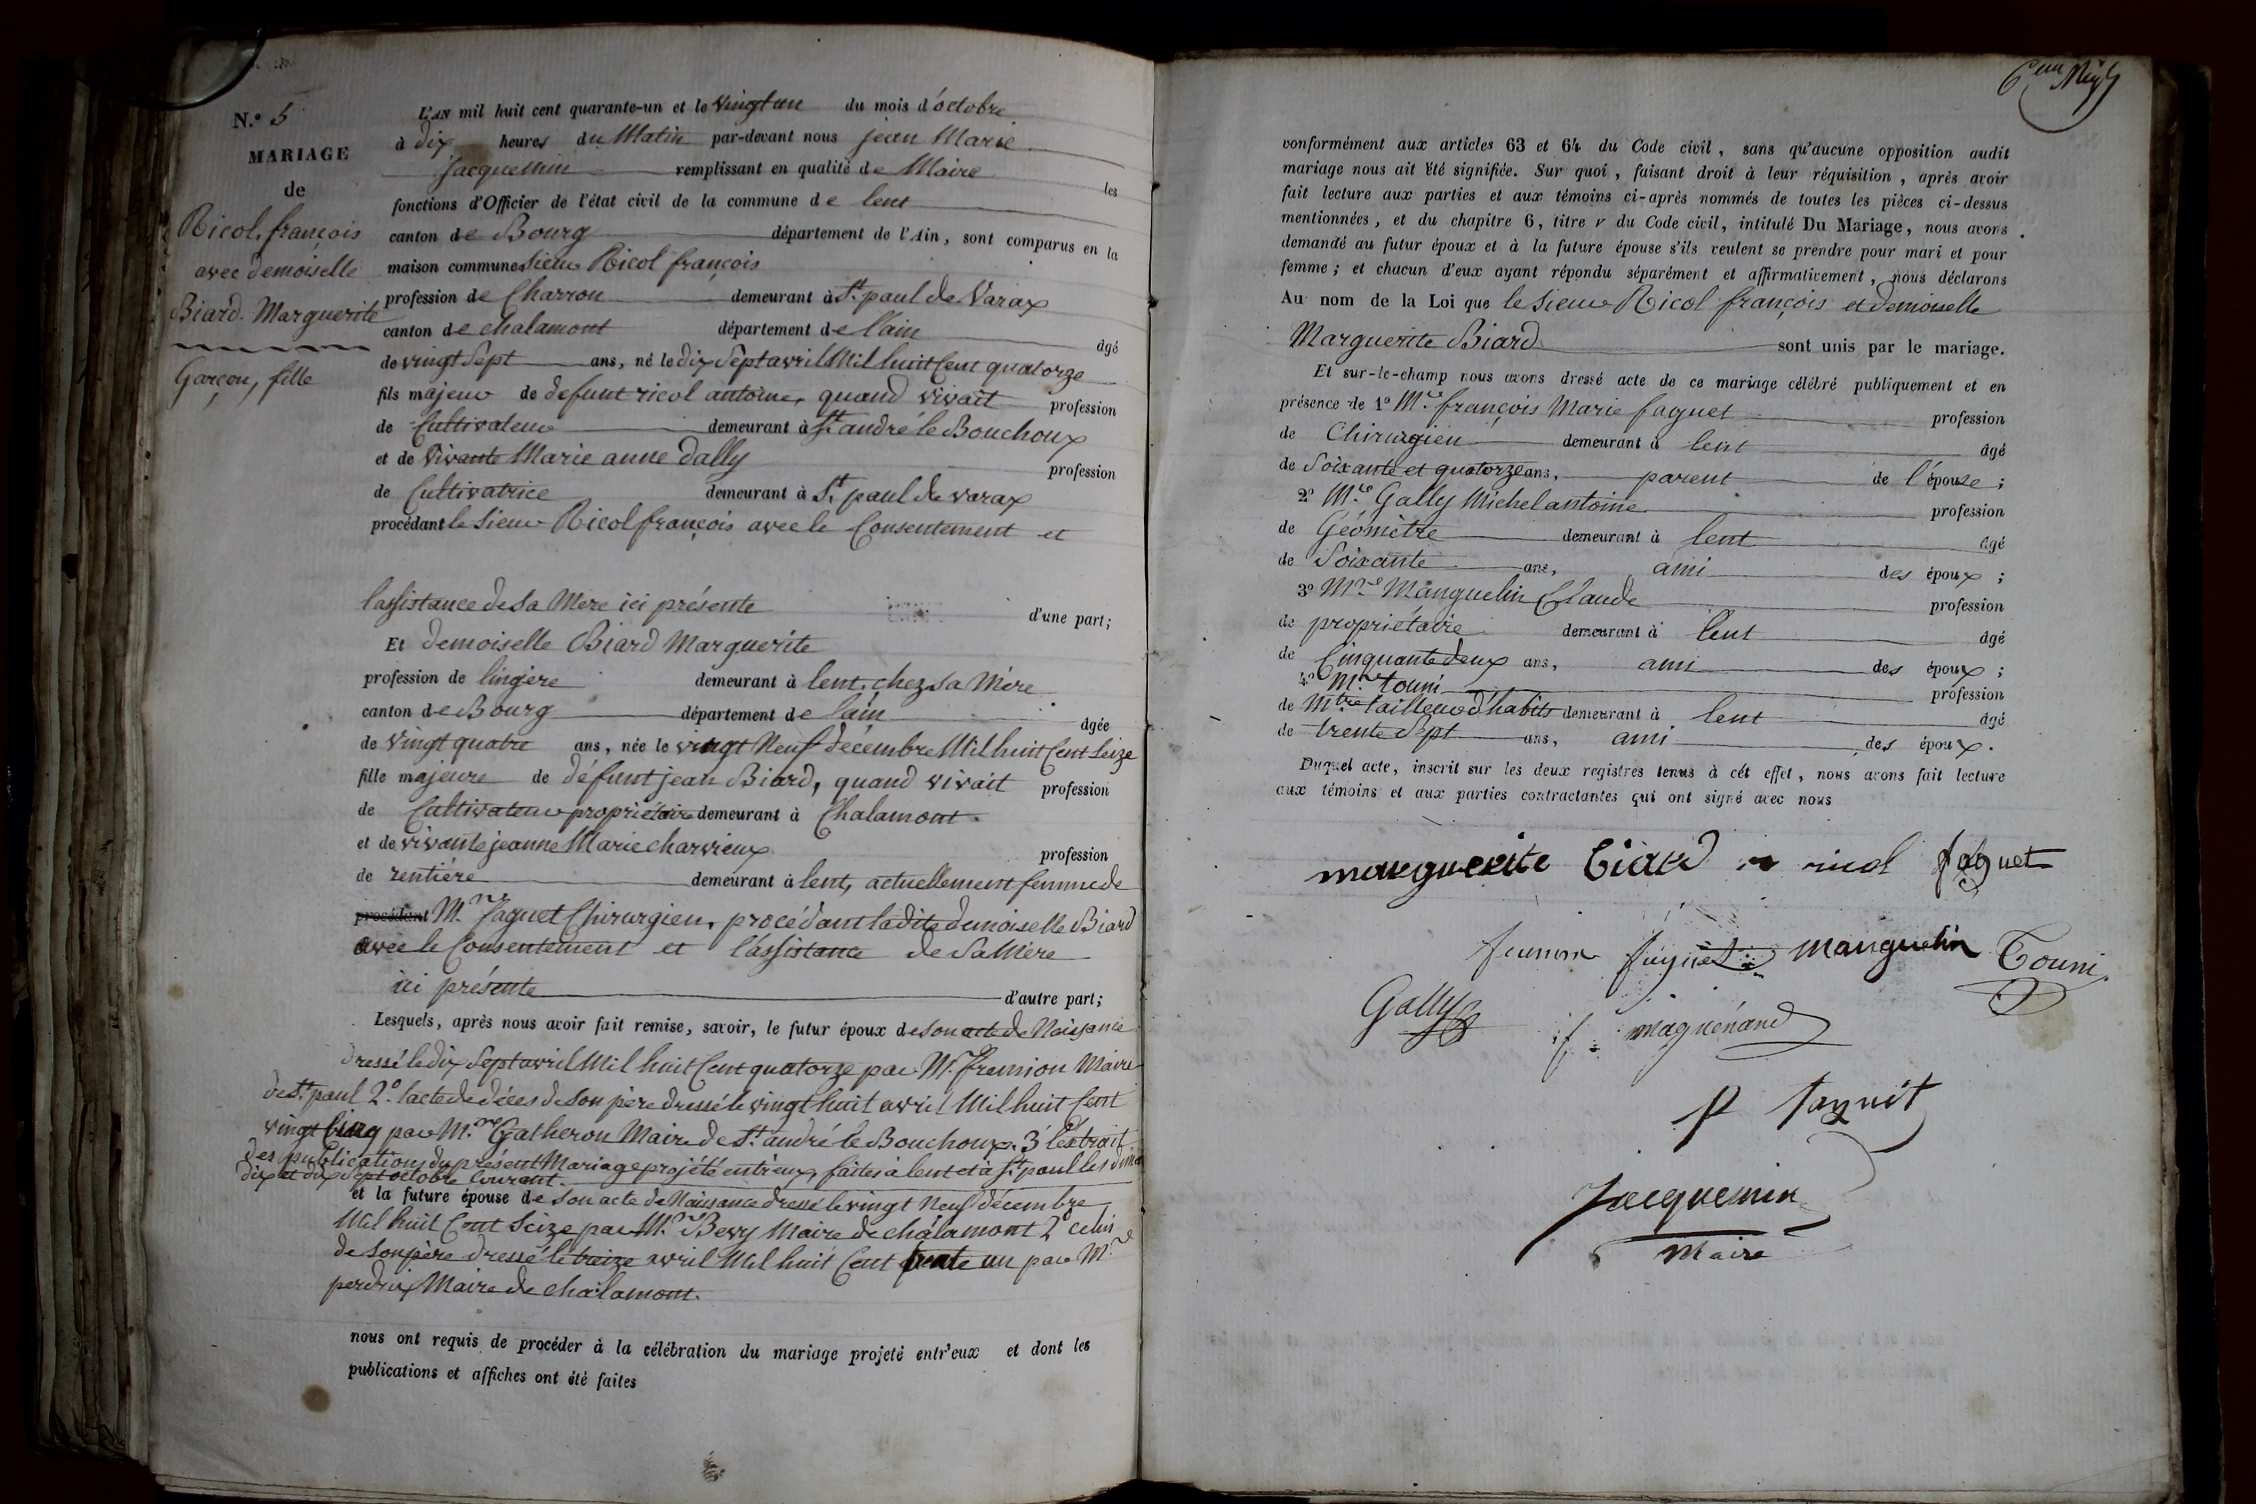 N.° 5
MARIAGE
de
Ricol, françois
avec demoiselle
Biard Marguerite
Garçon, fille
L'AN mil huit cent quarante-un et le vingt un du mois d'octobre
à dix heures du Matin par-devant nous jean Marie
Jacquemin remplissant en qualité de Maire les
fonctions d'Officier de l'état civil de la commune de lent
canton de Bourg département de l'Ain, sont comparus en la
maison commune Sieur Ricol françois
profession de Charron demeurant à St. paul de Varax
canton de chalamont département de l'ain âgé
de vingt Sept ans, né le dix Sept avril Mil huit Cent quatorze
fils majeur de defunt ricol antoine, quand vivait profession
de Cultivateur demeurant à St. andré le Bouchoux
et de Vivante Marie anne Dally profession
de Cultivatrice demeurant à St. paul de varax
procédant le Sieur Ricol françois avec le Consentement et
l'assistance de Sa Mère ici présente d'une part;
Et demoiselle Biard Marguerite
profession de lingère demeurant à lent, chez Sa Mère
canton de Bourg département de l'ain âgée
de vingt quatre ans, née le vingt Neuf décembre Mil huit Cent Seize
fille majeure de défunt jean Biard, quand vivait profession
de Cultivateur propriétaire demeurant à Chalamont.
et de vivante jeanne Marie charvieux profession
de rentière demeurant à lent, actuellement femme de
procédant M.r faguet Chirurgien, procédant ladite demoiselle Biard
avec le Consentement et l'assistance de Sa Mère
ici présente d'autre part;
Lesquels, après nous avoir fait remise, savoir, le futur époux de son acte de Naissance
dressé le dix Sept avril Mil huit Cent quatorze par M.r fremion Maire
de St. paul 2.° l'acte de décès de Son père dressé le vingt huit avril Mil huit Cent
vingt Cinq par M.re Gatheron Maire de St. andré le Bouchoux. 3° l'extrait
des publications du présent Mariage projété entrieux, faites à lent et à St. paul les dim
dix et dix Sept octobre Courant.
et la future épouse de son acte de Naissance dressé le vingt Neuf décembre
Mil huit Cent Seize par M.r Bevy Maire de chalamont 2° celui
de Son père dressé le treize avril Mil huit Cent trente un par M.r
perdrix Maire de chalamont.
nous ont requis de procéder à la célébration du mariage projeté entr'eux et dont les
publications et affiches ont été faites
conformément aux articles 63 et 64 du Code civil, sans qu'aucune opposition audit
mariage nous ait été signifiée. Sur quoi, faisant droit à leur réquisition, après avoir
fait lecture aux parties et aux témoins ci-après nommés de toutes les pièces ci-dessus
mentionnées, et du chapitre 6, titre v du Code civil, intitulé Du Mariage, nous avons
demandé au futur époux et à la future épouse s'ils veulent se prendre pour mari et pour
femme; et chacun d'eux ayant répondu séparément et affirmativement, nous déclarons
Au nom de la Loi que le Sieur Ricol françois et demoiselle
Marguerite Biard sont unis par le mariage.
Et sur-le-champ nous avons dressé acte de ce mariage célébré publiquement et en
présence de 1° M.re françois Marie faguet profession
de Chirurgien demeurant à lent âgé
de Soixante et quatorze ans, parent de l'épouse;
2° M.re Gally Michel antoine profession
de Géomètre demeurant à lent âgé
de Soixante ans, ami des époux;
3° M.re Manguelin Claude profession
de propriétaire demeurant à lent âgé
de Cinquante deux ans, ami des époux;
4° M.r touni profession
de Mtre tailleur d'habits demeurant à lent âgé
de trente Sept ans, ami des époux.
Duquel acte, inscrit sur les deux registres tenus à cét effet, nous avons fait lecture
aux témoins et aux parties contractantes qui ont signé avec nous
marguerite biard ricol faguet
femme faguet manguelin Touni
Gally magnénand
Jacquemin
Maire